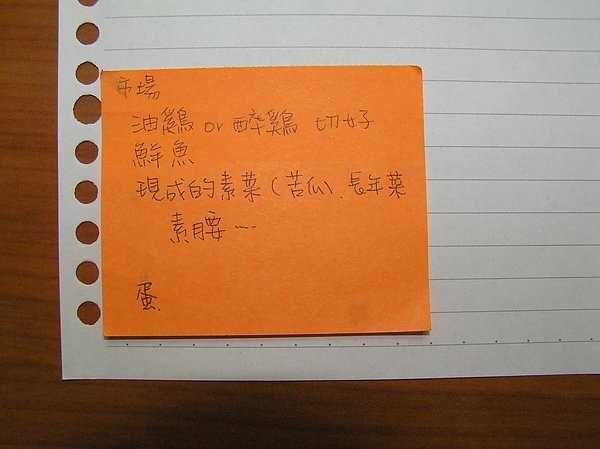 市場
油鷄 or 醉鷄 切好
鮮魚
現成的素菜(苦瓜).長年菜
素腰....
蛋.